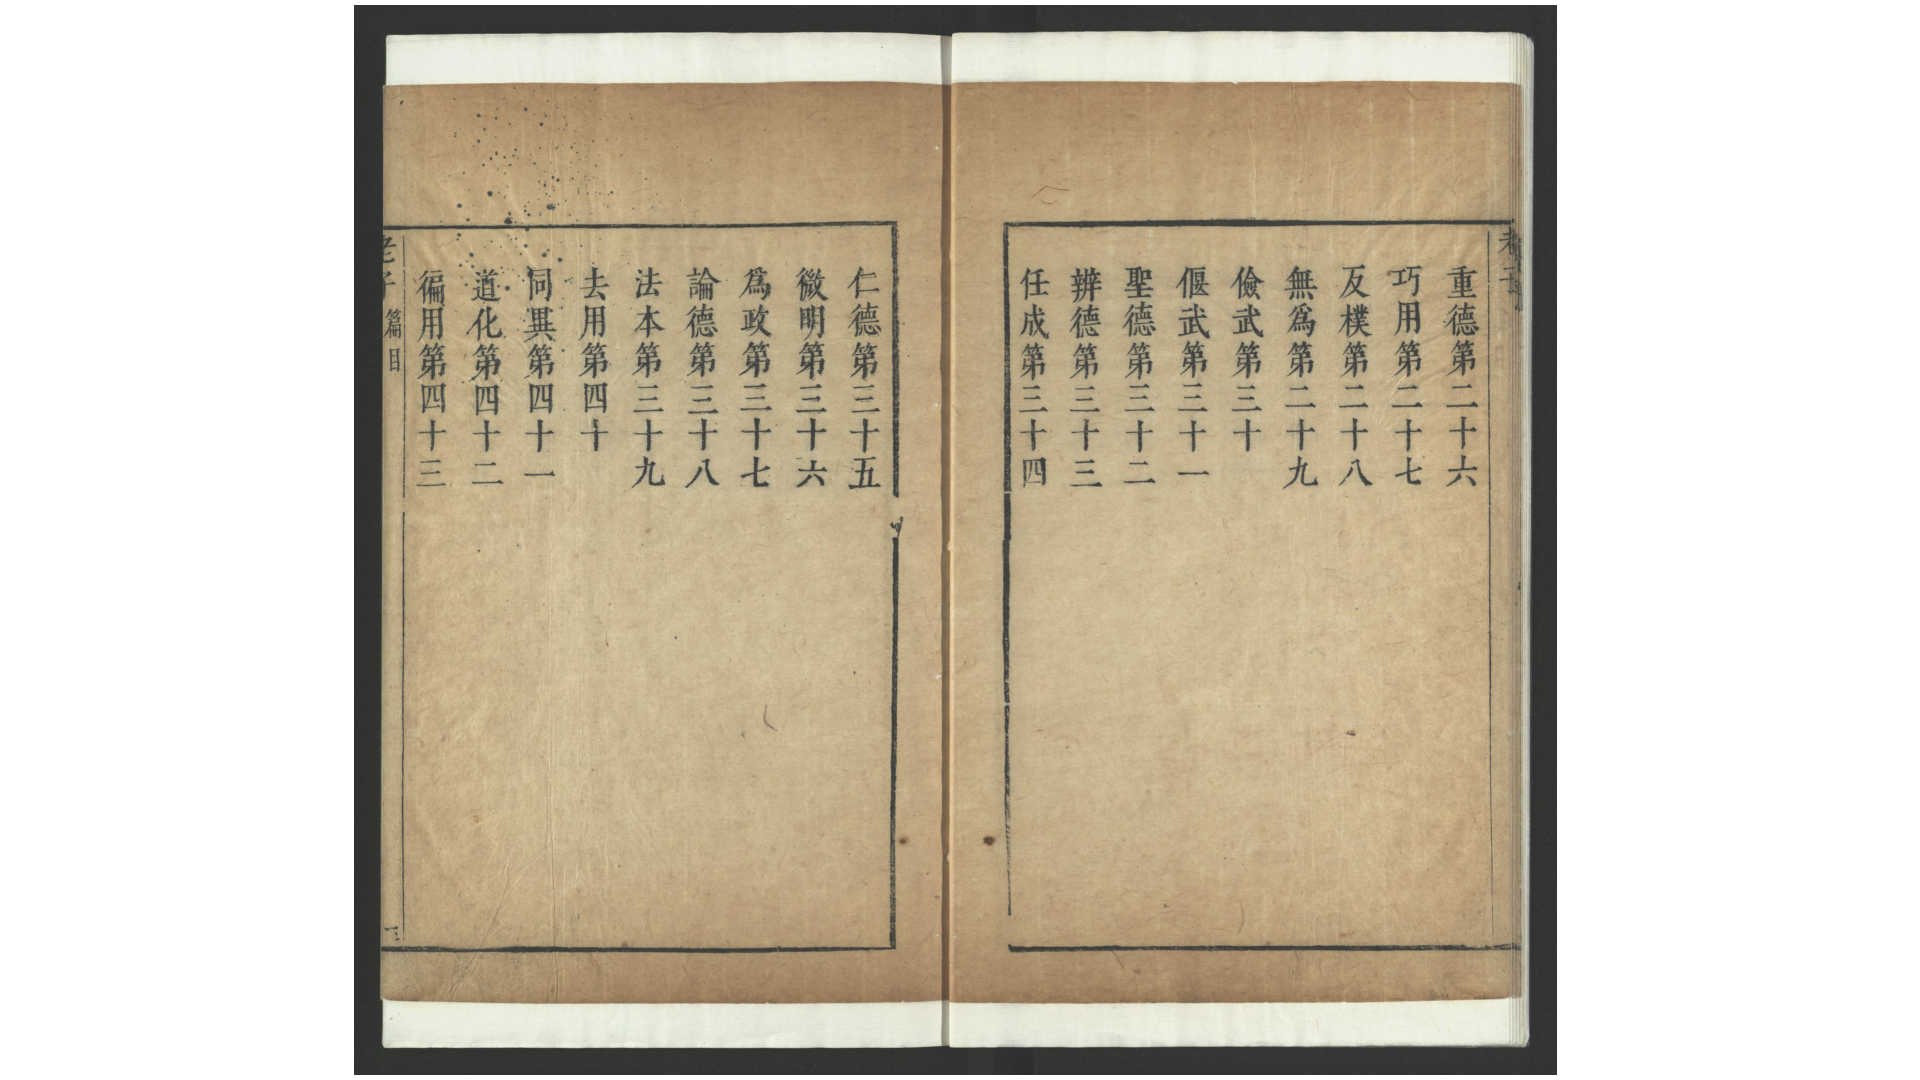 老子
重德第二十六
巧用第二十七
反樸第二十八
無爲第二十九
儉武第三十
偃武第三十一
聖德第三十二
辨德第三十三
任成第三十四
仁德第三十五
微明第三十六
爲政第三十七
論德第三十八
法本第三十九
去用第四十
同異第四十一
道化第四十二
徧用第四十三
老子 篇目
三